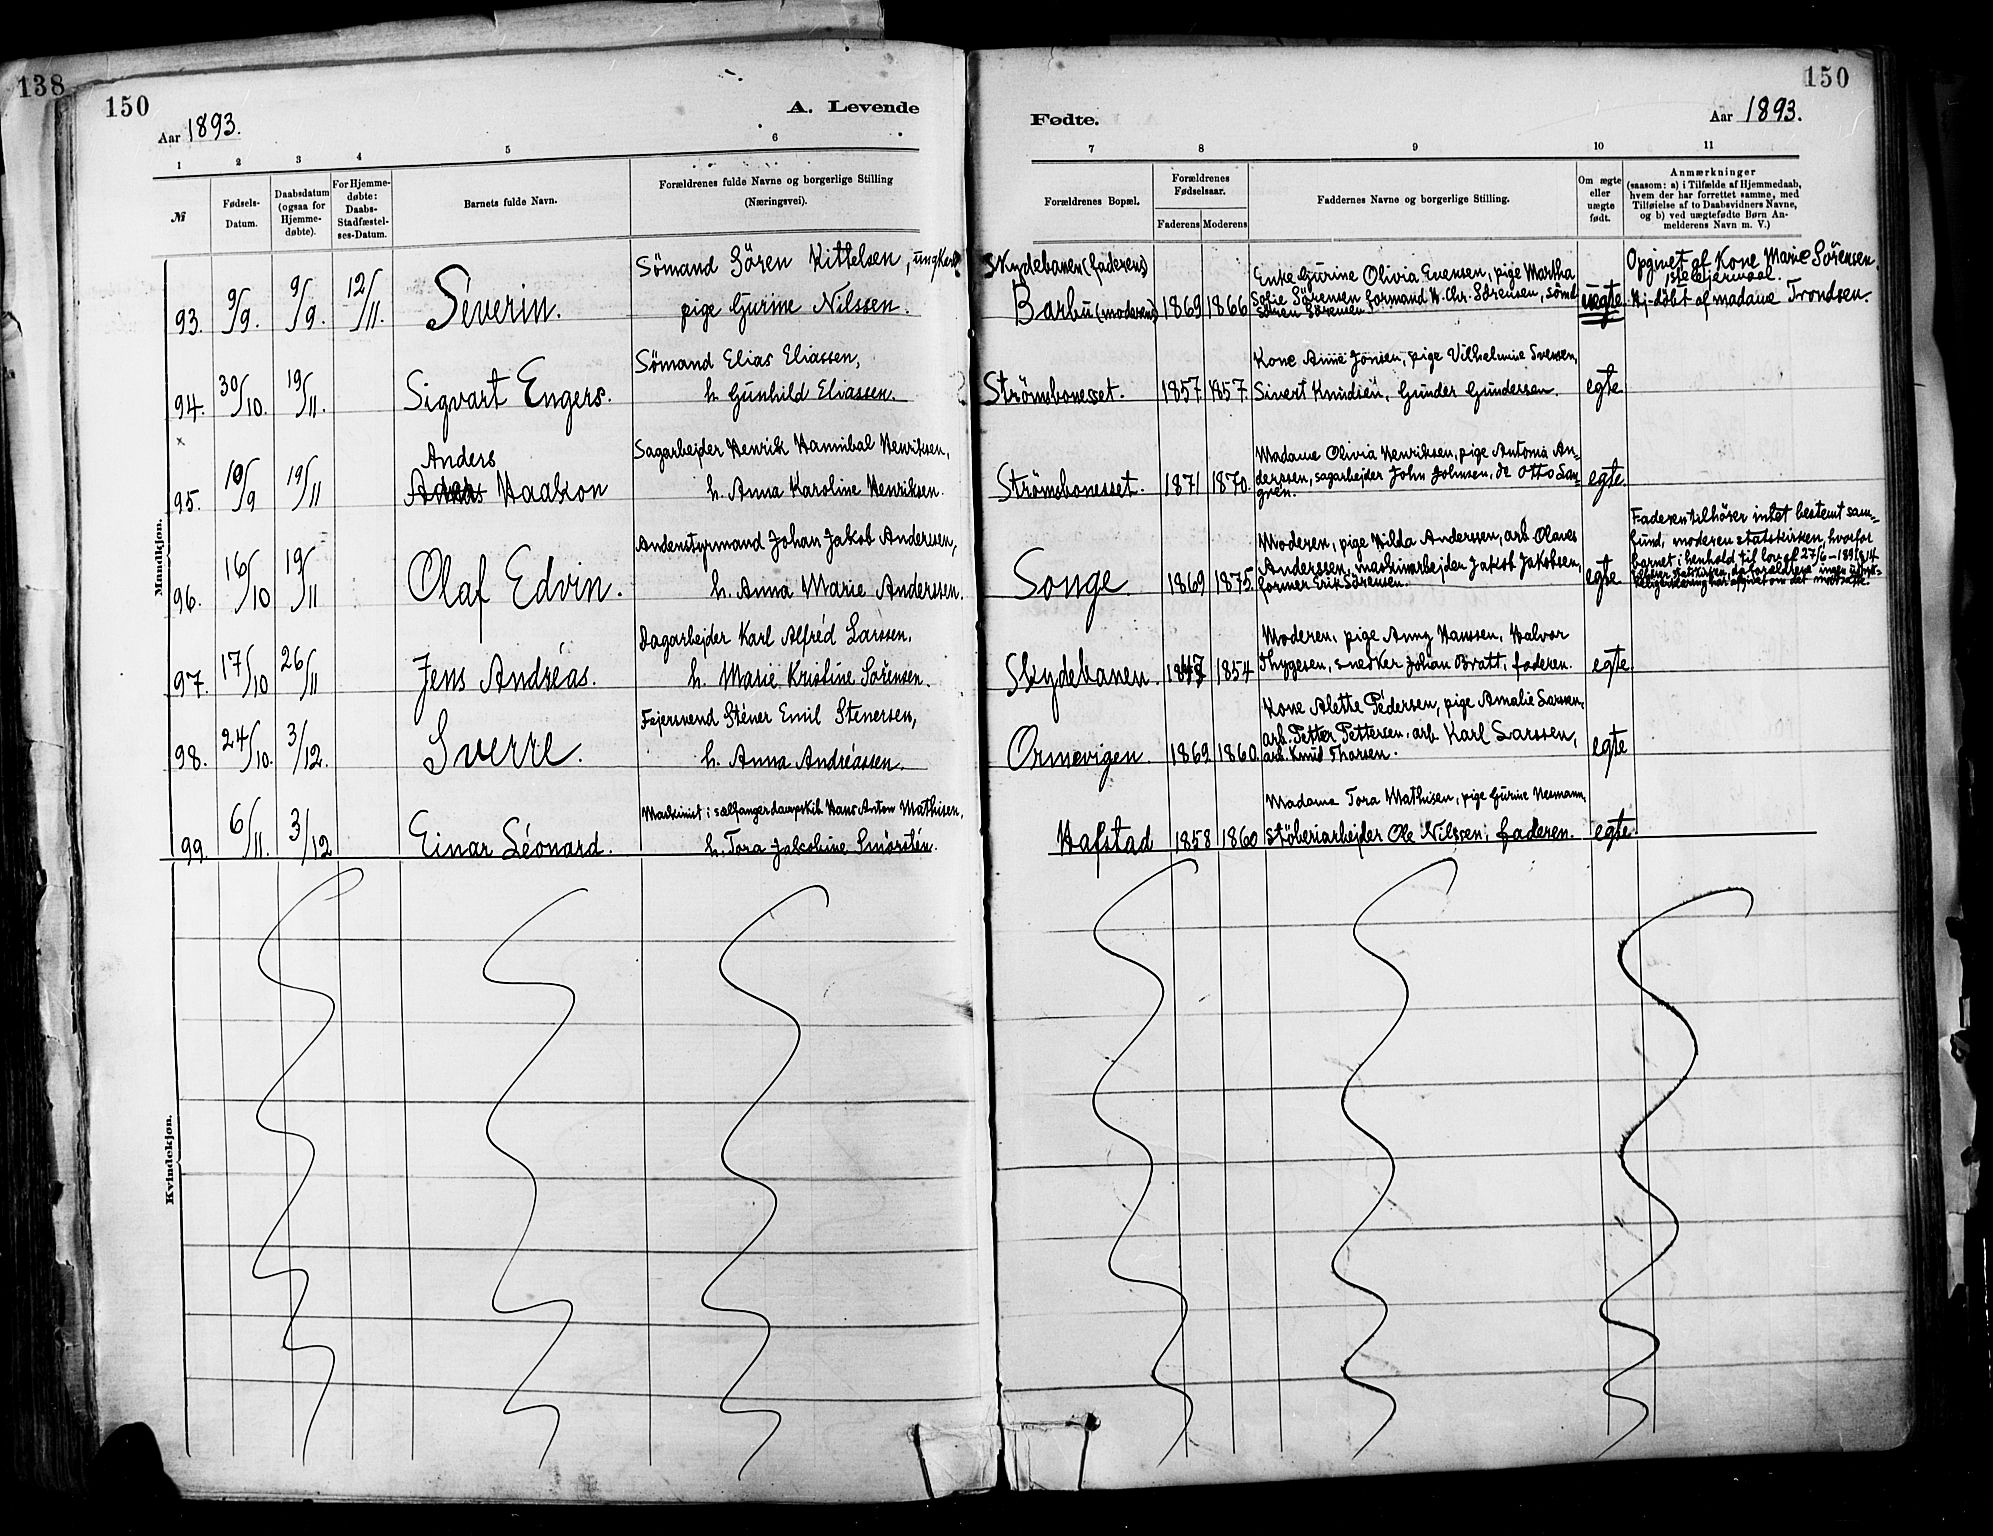 138
150
A. Levende
Aar 1893.
Fødte.
Aar 1893.
150
1 2 3 4 5 6
7 8 9 10 11
№
Fødsels-
Datum.
Daabsdatum
(ogsaa for
Hjemme-
døbte).
For Hjemme-
døbte:
Daabs-
Stadfæstel-
ses-Datum.
Barnets fulde Navn.
Forældrenes fulde Navne og borgerlige Stilling
(Næringsvei).
Forældrenes Bopæl.
Forældrenes
Fødselsaar.
Faderens Moderens
Faddernes Navne og borgerlige Stilling.
Om ægte
eller
uægte
født.
Anmærkninger
(saasom: a) i Tilfælde af Hjemmedaab,
hvem der har forrettet samme, med
Tilføielse af to Daabsvidners Navne,
og b) ved uægtefødte Børn An-
melderens Navn m. V.)
Mandkjøn.
93. 9/9. 9/9. 12/11. Severin.
Sömand Sören Kittelsen, ungkarl
pige Gurine Nilssen.
Skydebanen (faderens)
Barbu (moderens) 1869 1866
Enke Gurine Olivia Evensen, pige Martha
Sofie Sörensen, formand N. Chr. Sörensen, sömd
Sören Sörensen
uegte
Opgivet af Kone Marie Sörensen.
1ste leiermaal.
Hj-döbt af madame Trondsen.
94. 30/10. 19/11. Sigvart Engers.
Sömand Elias Eliassen,
h. Gunhild Eliassen.
Strömsbonesset. 1857 1857.
Kone Anne Jonsen, pige Vilhelmine Svensen,
Sivert Knudsen, Gunder Gundersen.
egte
×
95. 10/9 19/11
Anders
Haakon
Sagarbejder Henrik Hannibal Henriksen,
h. Anna Karoline Henriksen.
Strömsbonesset. 1871 1870.
Madame Olivia Henriksen, pige Antonia An-
derssen, sagarbejder John Johnsen, de Otto
egte
96. 16/10 19/11 Olaf Edvin.
Andenstyrmand Johan Jakob Anderssen,
h. Anna Marie Anderssen.
Songe 1869 1875.
Moderen, pige Hilda Anderssen, arb. Olaves
Anderssen, maskinarbejder Jakob Jakobsen,
former Erik Sörensen.
egte
Faderen tilhörer intet bestemt sam-
fund, moderen statskirken, hvorfor
barnet i henhold til lov af 27/6-1891 § 14
97. 17/10 26/11 Jens Andréas.
Dagarbejder Karl Alfréd Larssen,
h. Marie Kristine Sörensen.
Skydebanen. 1854
Moderen, pige Anny Hanssen, Halvor
Thygesen, snedker Johan Bratt, faderen.
egte
98. 24/10. 3/12. Sverre.
Fejersvend Stener Emil Stenersen,
h. Anna Andréassen.
Ormevigen. 1869 1860.
Kone Alette Pedersen, pige Amalie Larssen,
arb. Petter Pettersen, arb. Karl Larssen,
arb. Knud Thorsen.
egte
99. 6/11. 3/12 Einar Léonard.
Maskinist i sælfangerdampskib Hans Anton Mathisen,
h. Tora Jakobine Smörstén.
Hafstad 1858 1860
Madame Tora Mathisen, pige Gurine Nermann,
stöberiarbejder Ole Nilssen, faderen.
egte
Kvindekjøn.